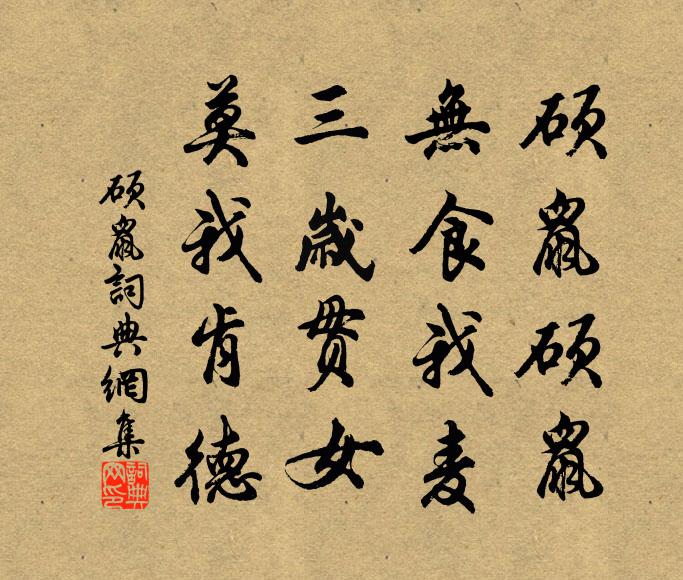 硕鼠硕鼠
無食我麦
三歲贯女
莫我肯德
硕鼠詞典網集
詞典网印